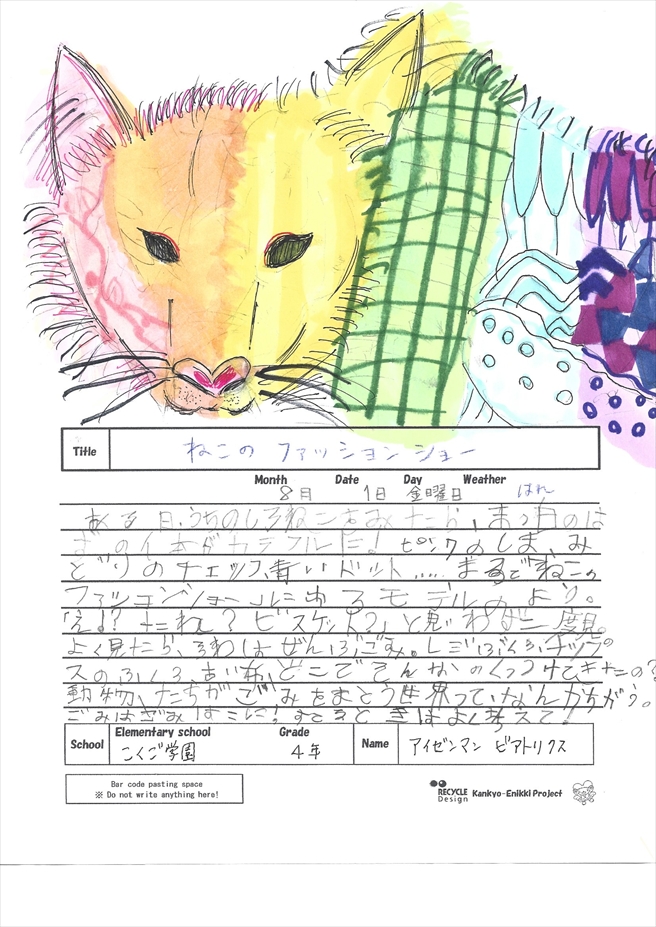 Title ねこの ファッションショー
Month Date Day Weather
8月 1日 金曜日 はれ
ある日、うちのしろねこをみたら、まっ白のは
ずの体がカラフルだ！ピンクのしま、み
どりのチェック、青いドット、……まるでねこの
ファションショーにあるモデルのよう。
「え！？なに？ビスケット？」と思わず二度見。
よく見たら、それはぜんぶごみ。レジぶくろ、チップ
スのふくろ、古い布、どこでそんなのくっつけてきたの？
動物、たちがごみをまとう世界って、なんかちがう。
ごみはごみばこに！すてるときはよく考えて！
School Elementary school Grade Name
こくご学園 4年 アイゼンマン ビアトリクス
Bar code pasting space
※ Do not write anything here!
RECYCLE Design Kankyo-Enikki Project